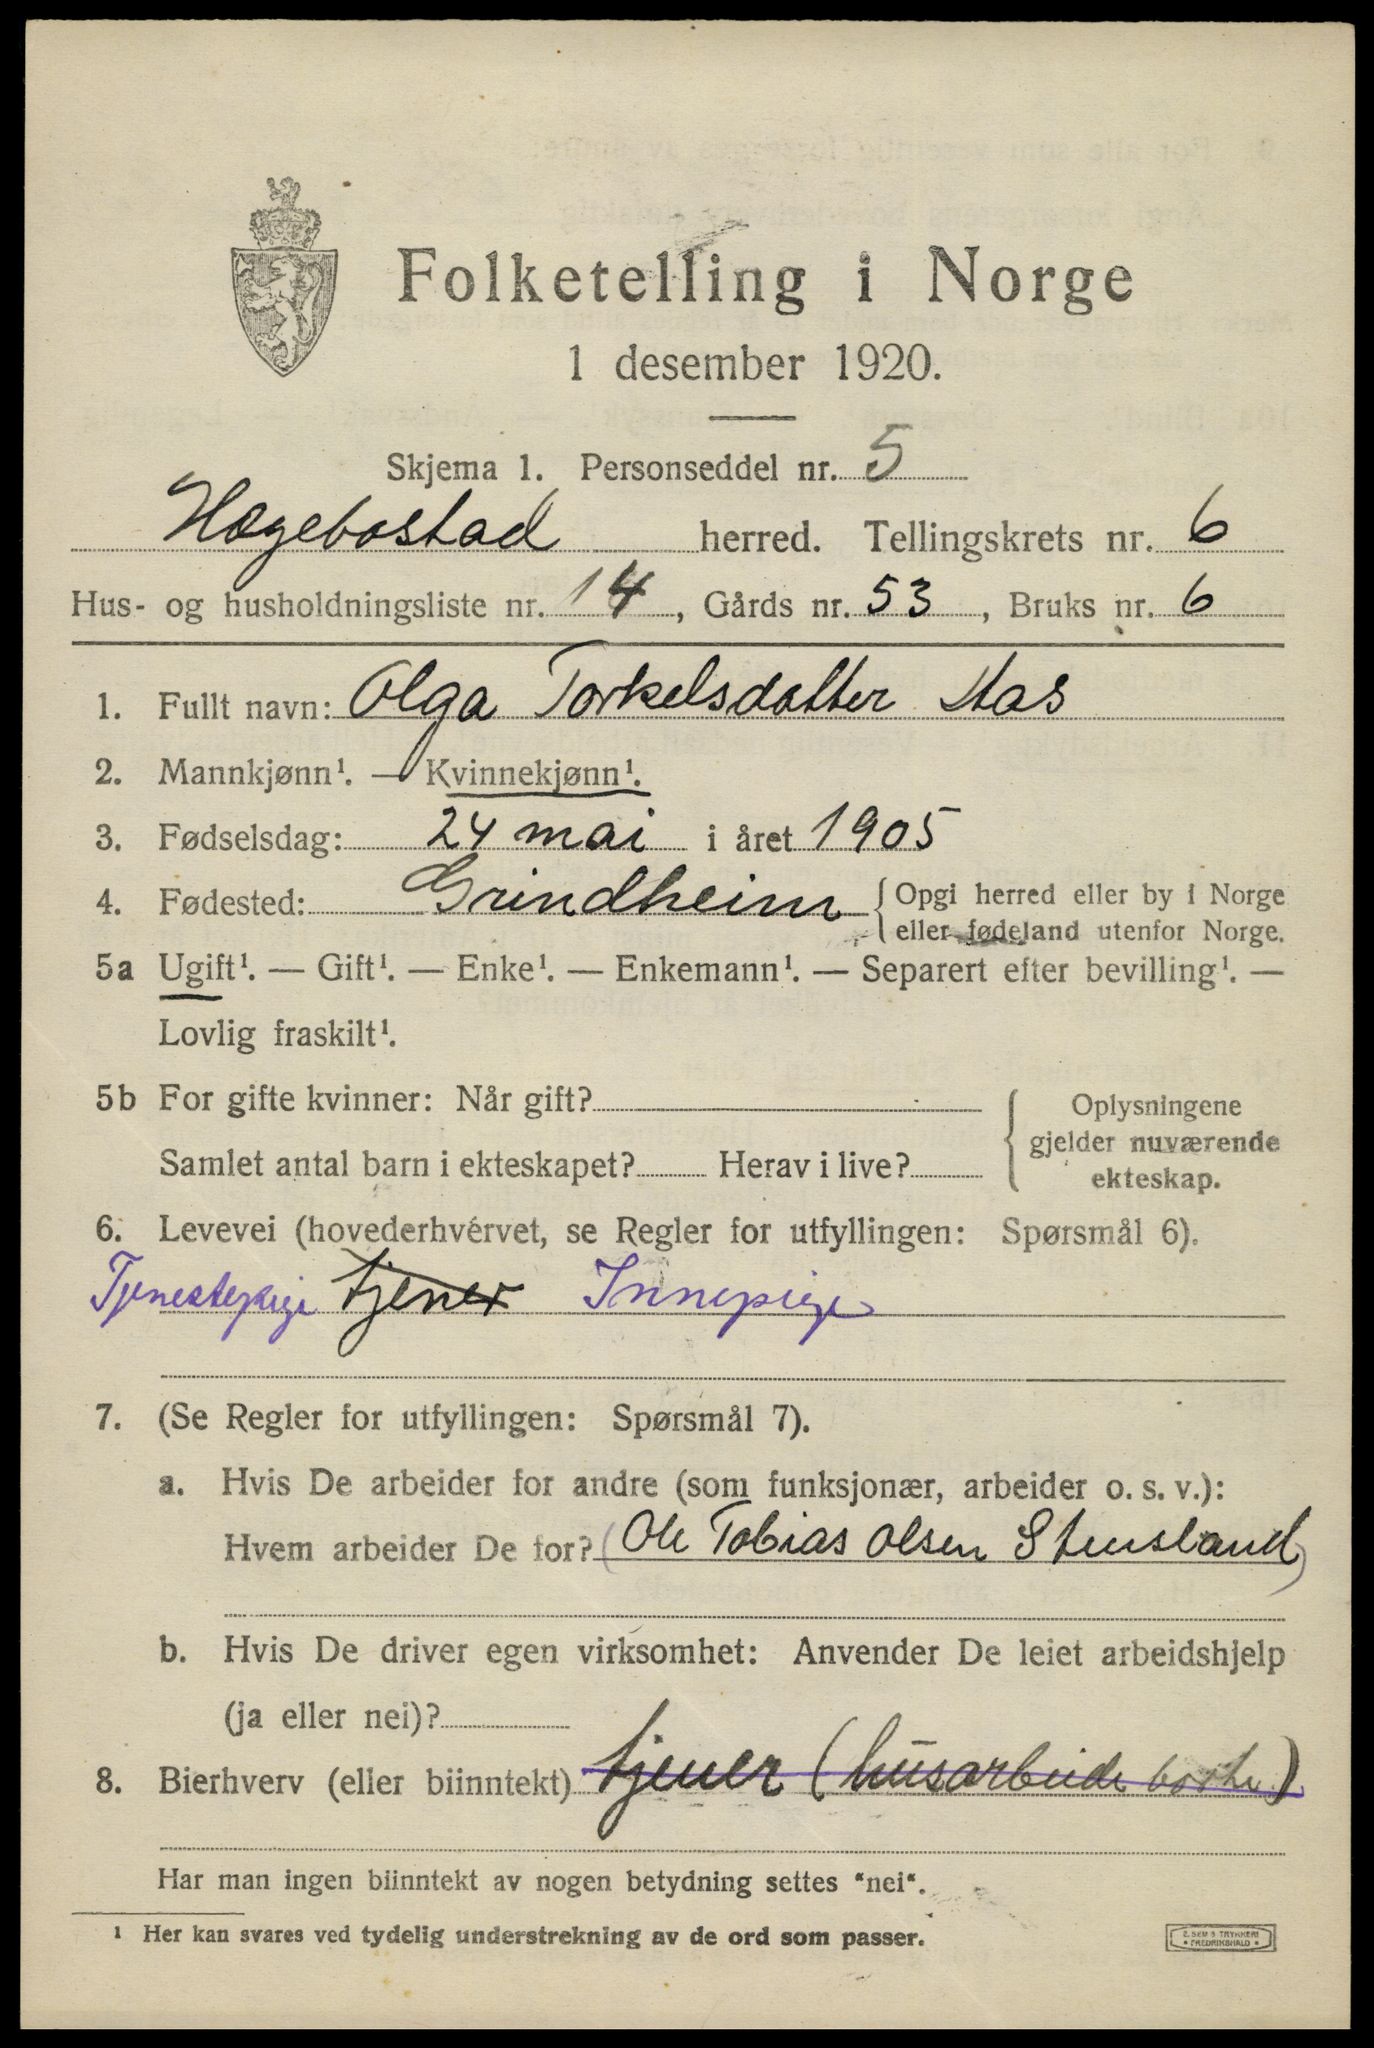 Folketelling i Norge
1 desember 1920.
Skjema 1. Personseddel nr. 5
Hægebostad herred. Tellingskrets nr. 6
Hus- og husholdningsliste nr. 14, Gårds nr. 53, Bruks nr. 6
1. Fullt navn: Olga Torkelsdatter Aas
2. Mannkjønn¹. — Kvinnekjønn¹.
3. Fødselsdag: 24 mai i året 1905
4. Fødested: Grindheim { Opgi herred eller by i Norge
eller fødeland utenfor Norge.
5a Ugift¹. — Gift¹. — Enke¹. — Enkemann¹. — Separert efter bevilling¹. —
Lovlig fraskilt¹.
5b For gifte kvinner: Når gift? { Oplysningene
gjelder nuværende
Samlet antal barn i ekteskapet? Herav i live? ekteskap.
6. Levevei (hovederhvérvet, se Regler for utfyllingen: Spørsmål 6).
Tjenestepige tjener Innepige
7. (Se Regler for utfyllingen: Spørsmål 7).
a. Hvis De arbeider for andre (som funksjonær, arbeider o. s. v.):
Hvem arbeider De for? (Ole Tobias Olsen Stensland)
b. Hvis De driver egen virksomhet: Anvender De leiet arbeidshjelp
(ja eller nei)?
8. Bierhverv (eller biinntekt) tjener (husarbeide borte)
Har man ingen biinntekt av nogen betydning settes "nei".
¹ Her kan svares ved tydelig understrekning av de ord som passer.